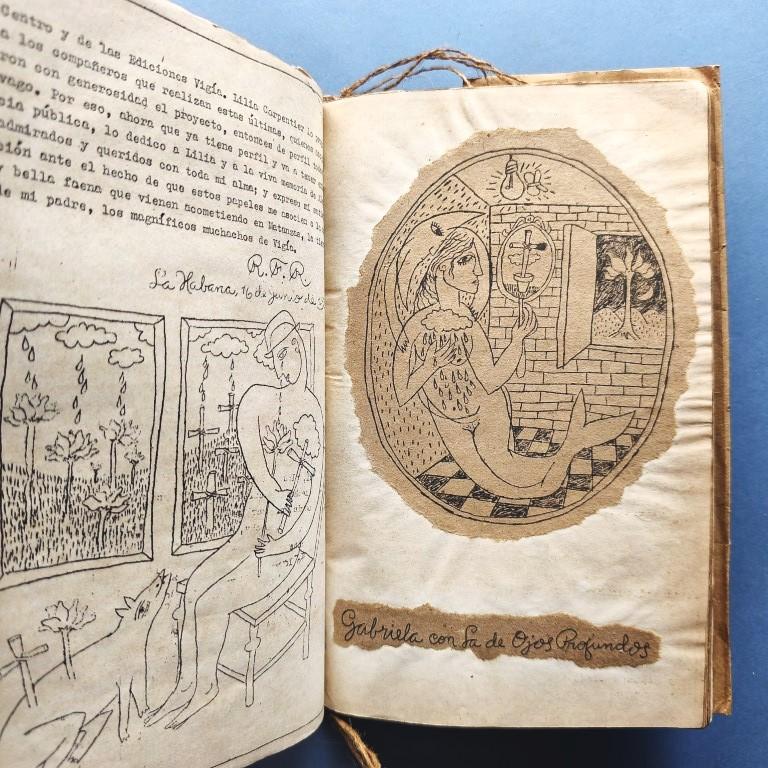 Centro y de las Ediciones Vigía. Lilia Carpentier lo
a los compañeros que realizan estas últimas, quienes
ron con generosidad el proyecto, entonces de perfil
vago. Por eso, ahora que ya tiene perfil y va a tener
cia pública, lo dedico a Lilia y a la viva memoria de
admirados y queridos con toda mi alma; y expreso mi
ción ante el hecho de que estos papeles me asocien a la
y bella faena que vienen acometiendo en Matanzas, la
de mi padre, los magníficos muchachos de Vigía.
R. F. R.
La Habana, 16 de junio de
Gabriela con La de Ojos Profundos